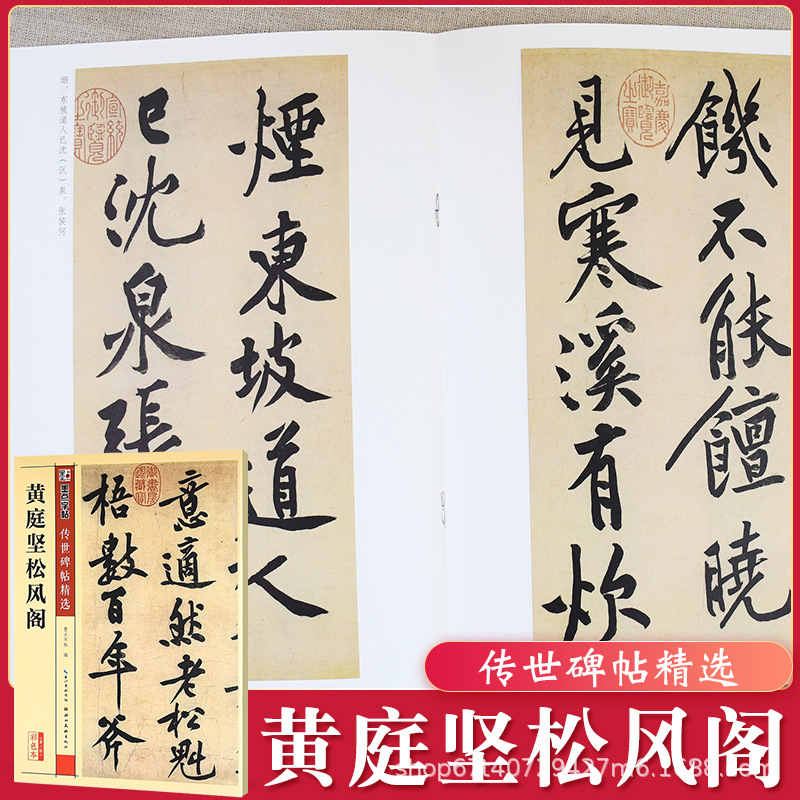 饑不能饘曉
見寒溪有炊
嘉慶御覽之寶
煙東坡道人
已沈泉張
烟。东坡道人已沈（沉）泉。张侯何
宣統御覽之寶
墨点字帖
传世碑帖精选
黄庭坚松风阁
墨点字帖 编
彩色本
意適然老松魁
梧數百年斧
传世碑帖精选
黄庭坚松风阁